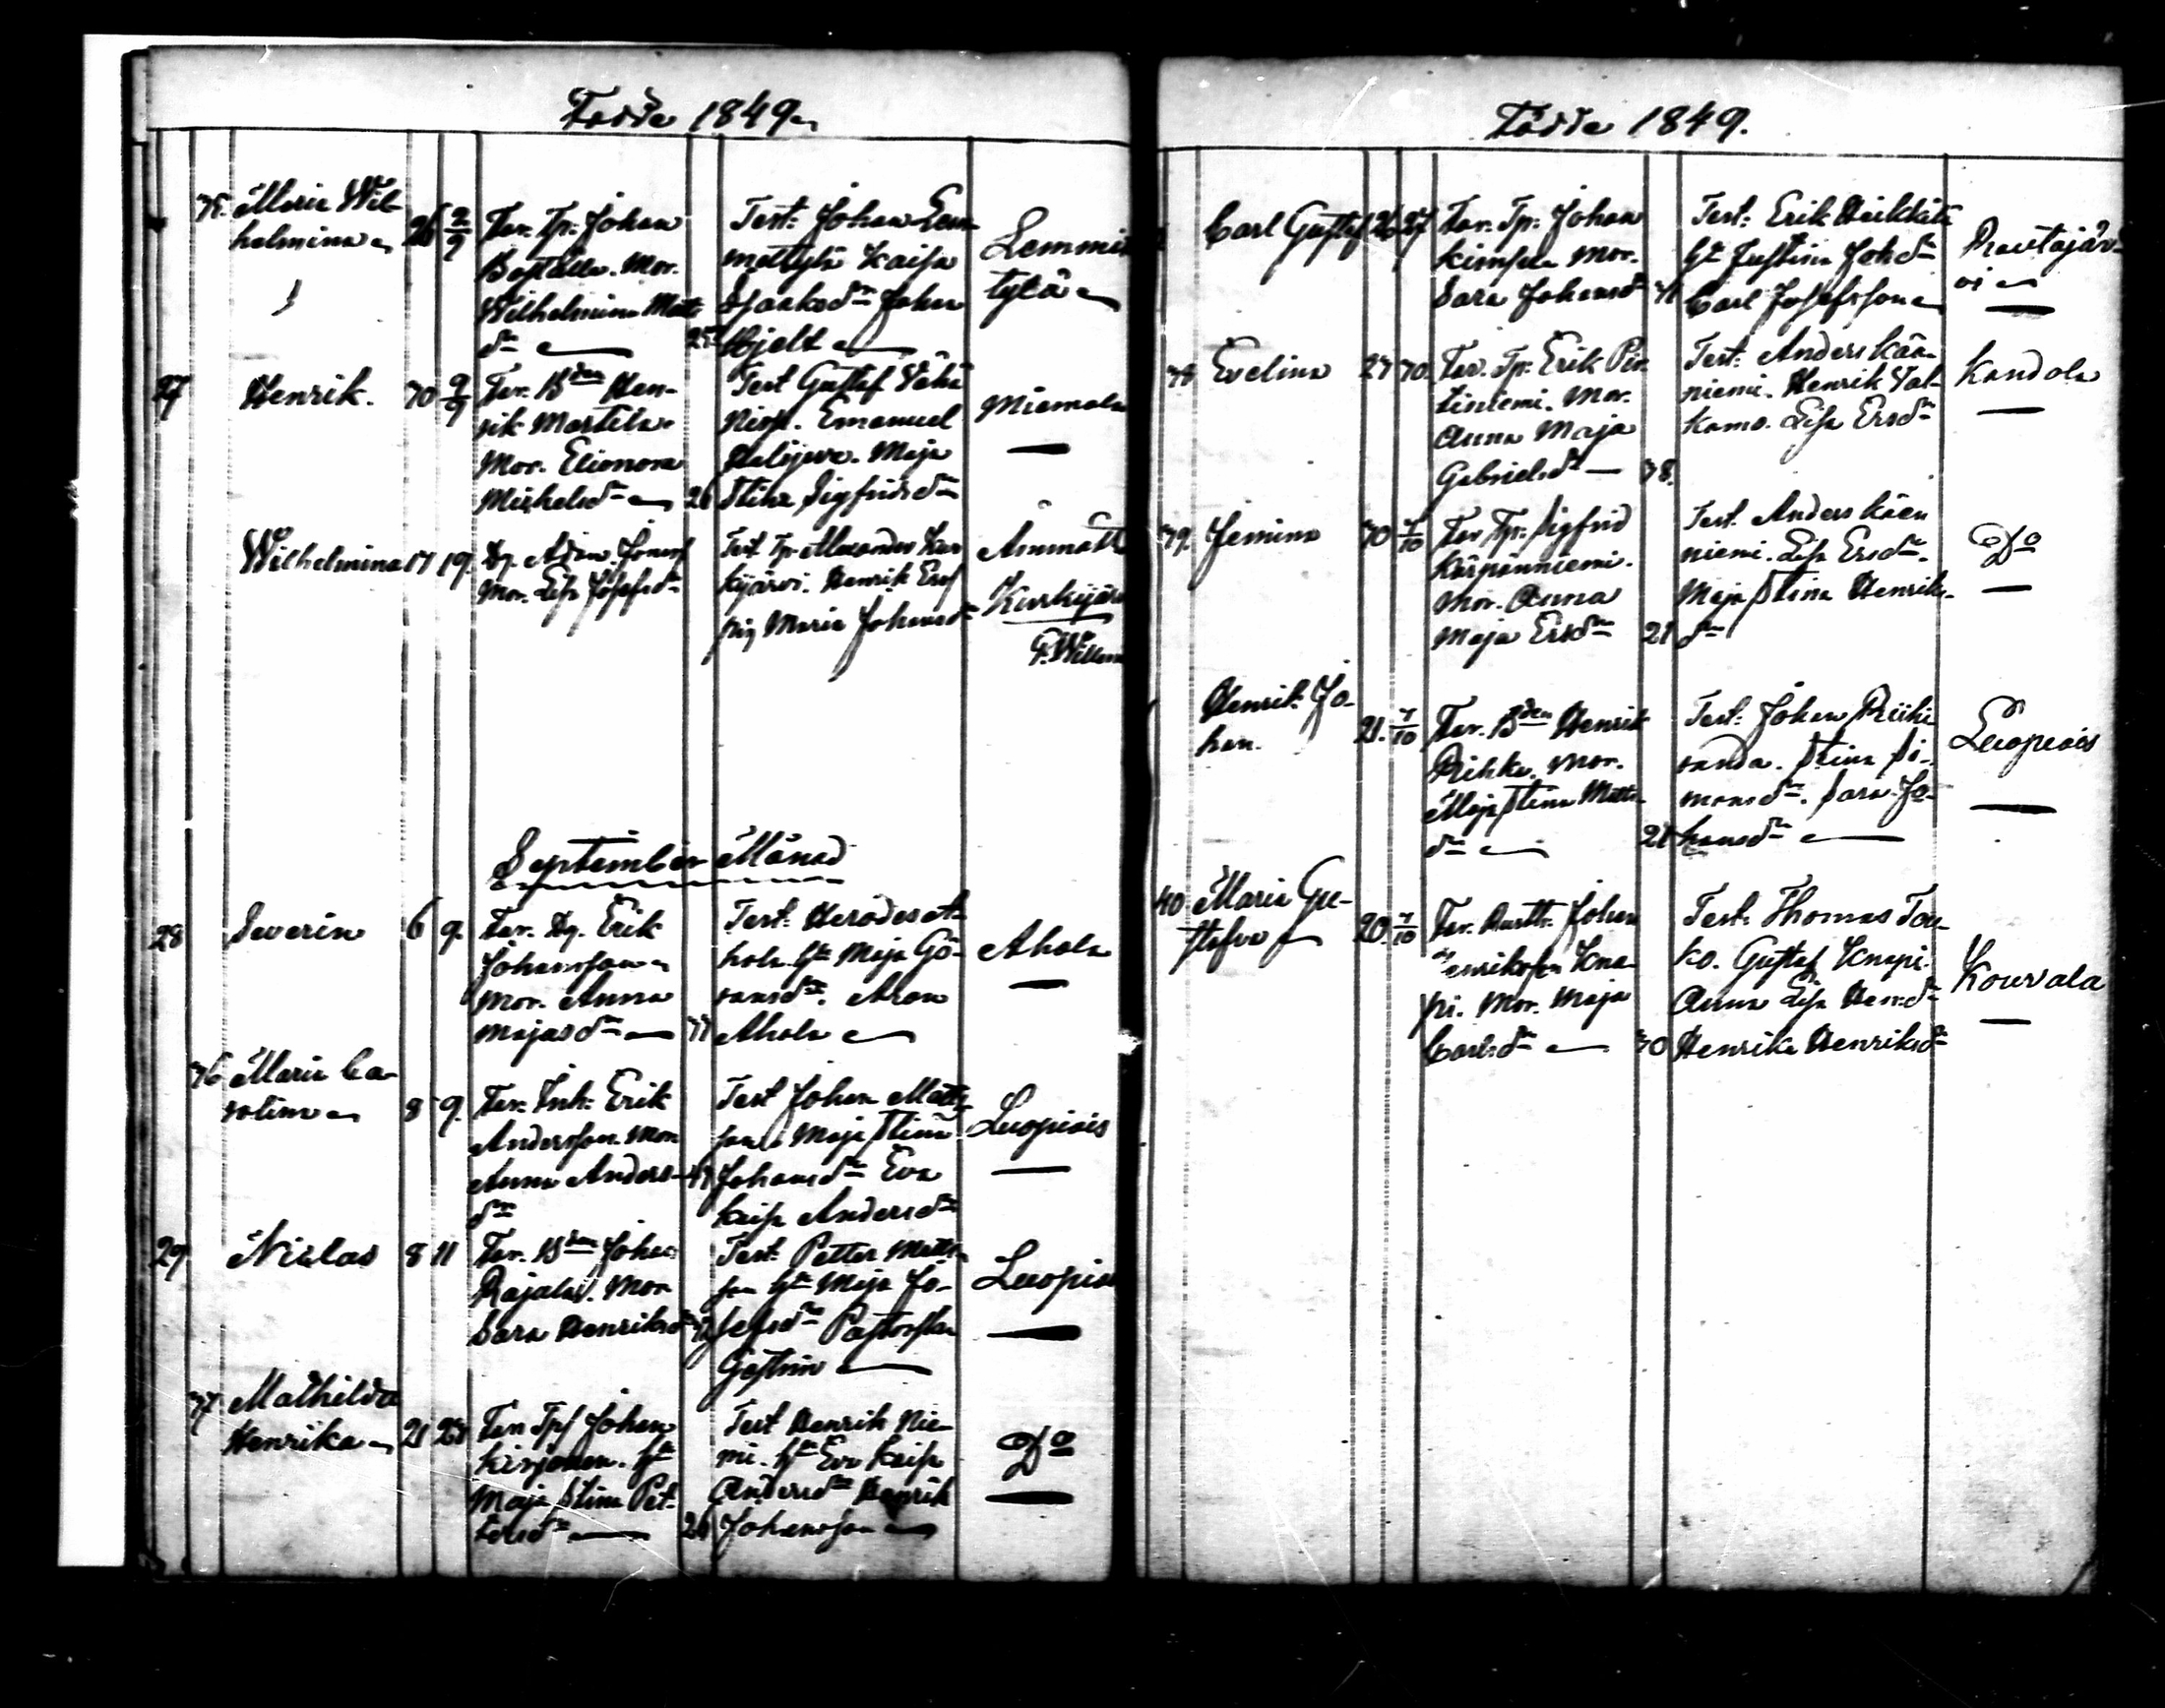 Födde 1849
75. Maria Wil-
helmina
26 2/9
Far. Tp. Johan
Boställe. Mor.
Wilhelmina Matts
dr
25
Test: Johan Lem-
mettylä Kaisa
Isaksdr Johan
Hjelt
Lemmet
tylä
27
Henrik.
30 2/9
Far. Bden Hen-
rik Marttila.
Mor. Elionora
Michelsdr
26
Test Gustaf Vähä
Emanuel
Maja
Stina Sigfridsdr
Miemala
Wilhelmina 17 19
Dg. Adam
Mor. Lisa Josefsdr
Test. Tp. Alexander Kur
kijärvi. Henrik
pig Maria Johansdr
Ämmätt
Kurkijärv
September Månad
28
Severin
6 9.
Far. Dg. Erik
Johansson
Mor. Anna
Majasdr
37
Test: Herodes A-
hola hu Maja Gö-
ransdr. Aron
Ahola
Ahola
36 Maria Ca-
rolina
8 9.
Far. Inh. Erik
Andersson. Mor
Anna Anders-
dr
Test Johan Matts
son Maja Stina
Johansdr Eva
Kaisa Andersdr
Luopiois
29
Niclas
8 11
Far. Bden Johan
Rajala. Mor
Sara Henriksdr
Test. Petter Matts-
son hu Maja Jo-
sefsdr Pastorskan
Gestrin
Luopioi
37 Mathilda
Henrika
21 23
Far Tpf Johan
Kirjonen. hu
Maja Stina Pet-
tersdr
26
Test Henrik Nie-
mi. hu Eva Kaisa
Andersdr Henrik
Johansson
Do
Födde 1849.
Carl Gustaf 26 27
Far. Tp. Johan
Mor.
Sara Johansdr
Test: Erik Heikkilä
hu Justina Johsdr
Carl Josefsson
Rautajär-
vi
38 Evelina
27 30.
Far. Tp. Erik Pin
tiniemi. Mor.
Anna Maja
Gabrielsdr
38.
Test: Anders Kää-
niemi. Henrik Val-
kama. Lisa Ersdr
Kandola
39. Jemina
30 7/10
Far. Tp. Sigfrid
Kärpänniemi.
Mor. Anna
Maja Ersdr
21
Test. Anders Kään
niemi. Lisa Ersdr.
Maja Stina Henriks-
dr
Do
Henrik Jo-
han.
21. 7/10
Far. Bden Henrik
Mor.
Maja Stina Matts-
dr
21
Test: Johan Riihi
randa. Stina Si-
monsdr. Sara Jo-
hansdr
Luopiois
40 Maria Gu-
stafva
20. 7/10
Far. Rustth. Johan
Henriksson Knaa-
pi. Mor. Maja
Carlsdr
30
Test. Thomas Tau-
ko. Gustaf Knapi.
Anna Lisa Henrdr
Henrika Henriksdr
Kouvala